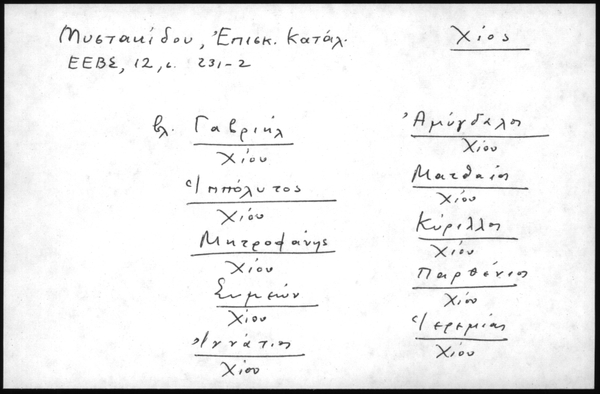 Μυστακίδου, Ἐπισκ. Κατάλ.
Χίος
ΕΕΒΣ, 12, σ. 231-2
βλ. Γαβριήλ
Χίου
Ἱππόλυτος
Χίου
Μητροφάνης
Χίου
Συμεών
Χίου
Ἰγνάτιος
Χίου
Ἀμύγδαλος
Χίου
Ματθαῖος
Χίου
Κύριλλος
Χίου
Παρθένιος
Χίου
Ἱερεμίας
Χίου